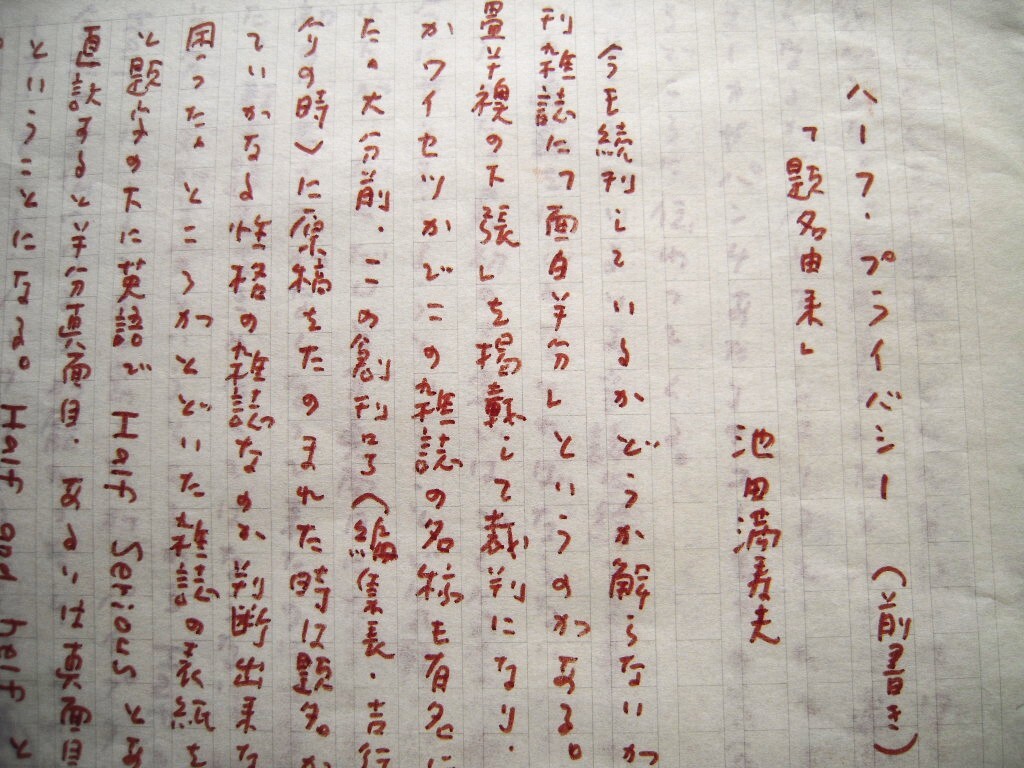 ハーフ・プライバシー（前書き）
「題名由来」
池田満寿夫
今も続刊しているかどうか解らないが
刊雑誌に「面白半分」というのがある。
畳半襖の下張」を掲載して裁判になり、
がワイセツかどこの雑誌の名称も有名に
た。大分前、この創刊号（編集長・吉行
介の時）に原稿をたのまれた時は題名。か
ていかなる性格の雑誌なのか判断出来な
困った。ところがとどいた雑誌の表紙を
と題字の下に英語で Half Serious とあ
直訳すると半分真面目、あるいは真面目
ということになる。Half and half と